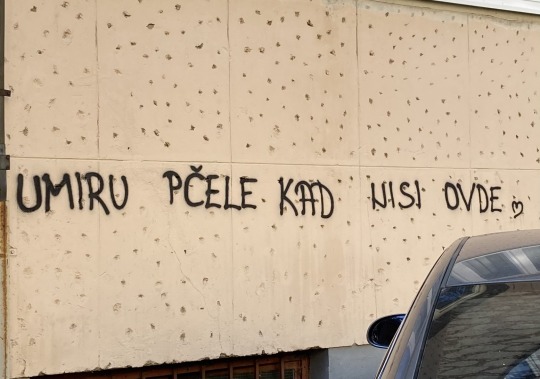 UMIRU PČELE KAD NISI OVDE